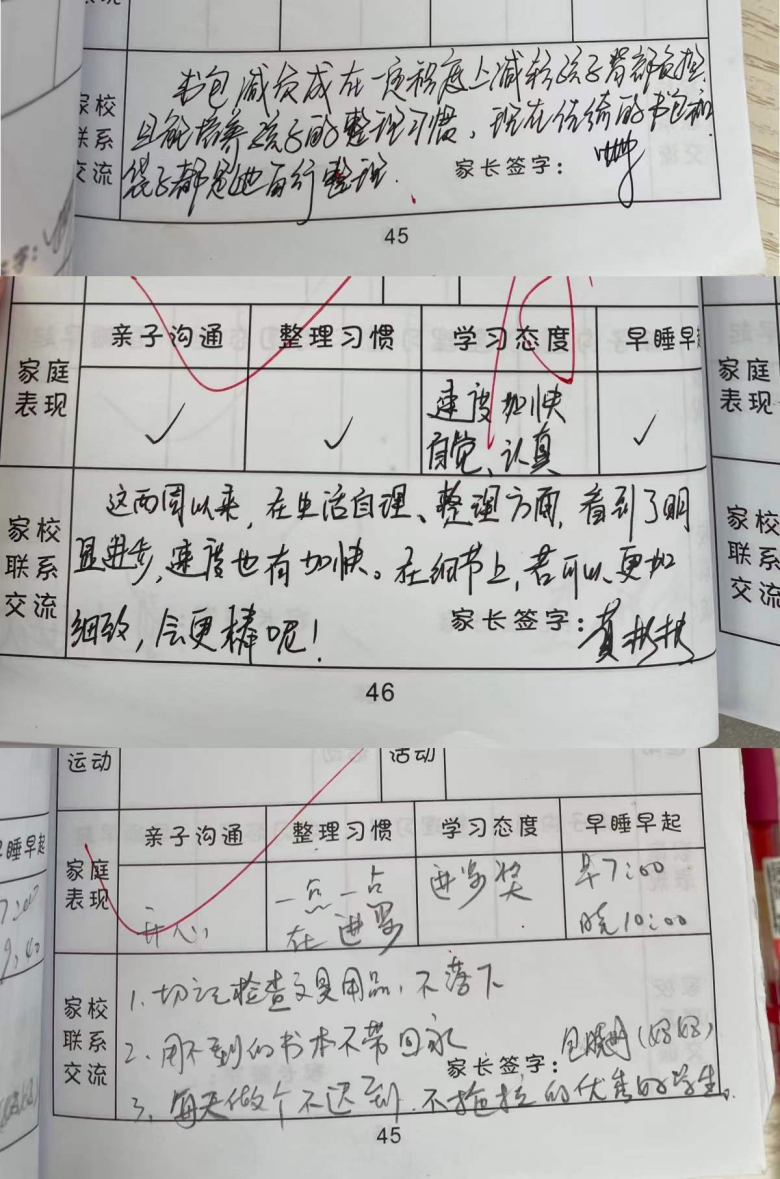 书包减负成在一定程度上减轻孩子背部负担,
家校
联系
交流
且能培养孩子的整理习惯,现在依绮的书包和
袋子都是她自行整理.
家长签字:
45
亲子沟通 整理习惯 学习态度 早睡早起
家庭
表现
✓ ✓ 速度加快 ✓
自觉、认真
家庭
表现
这两周以来,在生活自理、整理方面,看到了明
显进步,速度也有加快。在细节上,若可以更加
细致,会更棒呢!
家校
联系
交流
家长签字:
家校
联系
交流
46
运动 活动
亲子沟通 整理习惯 学习态度 早睡早起
睡早起
家庭
表现
开心 一点一点 进步奖 早7:00
在进步 晚10:00
家校
联系
交流
1. 切记检查文具用品,不落下
2、用不到的书本不带回家
家长签字: (妈妈)
3、每天做个不迟到,不拖拉的优秀好学生。
45